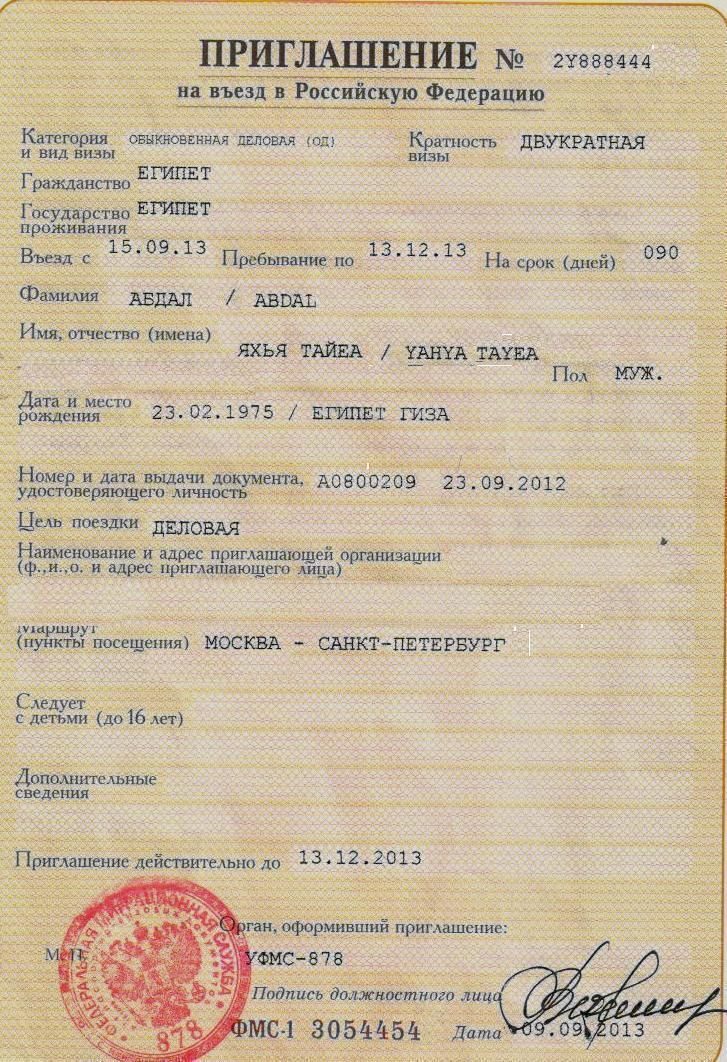 ПРИГЛАШЕНИЕ № 2Y888444
на въезд в Российскую Федерацию
Категория и вид визы ОБЫКНОВЕННАЯ ДЕЛОВАЯ (ОД) Кратность визы ДВУКРАТНАЯ
Гражданство ЕГИПЕТ
Государство проживания ЕГИПЕТ
Въезд с 15.09.13 Пребывание по 13.12.13 На срок (дней) 090
Фамилия АБДАЛ / ABDAL
Имя, отчество (имена)
ЯХЬЯ ТАЙЕА / YAHYA TAYEA
Пол МУЖ.
Дата и место
рождения 23.02.1975 / ЕГИПЕТ ГИЗА
Номер и дата выдачи документа,
удостоверяющего личность A0800209 23.09.2012
Цель поездки ДЕЛОВАЯ
Наименование и адрес приглашающей организации
(ф.,и.,о. и адрес приглашающего лица)
Маршрут
(пункты посещения) МОСКВА - САНКТ-ПЕТЕРБУРГ
Следует
с детьми (до 16 лет)
Дополнительные
сведения
Приглашение действительно до 13.12.2013
Орган, оформивший приглашение:
М.П. УФМС-878
Подпись должностного лица
ФМС-1 3054454 Дата 09.09.2013
ФЕДЕРАЛЬНАЯ МИГРАЦИОННАЯ СЛУЖБА
878